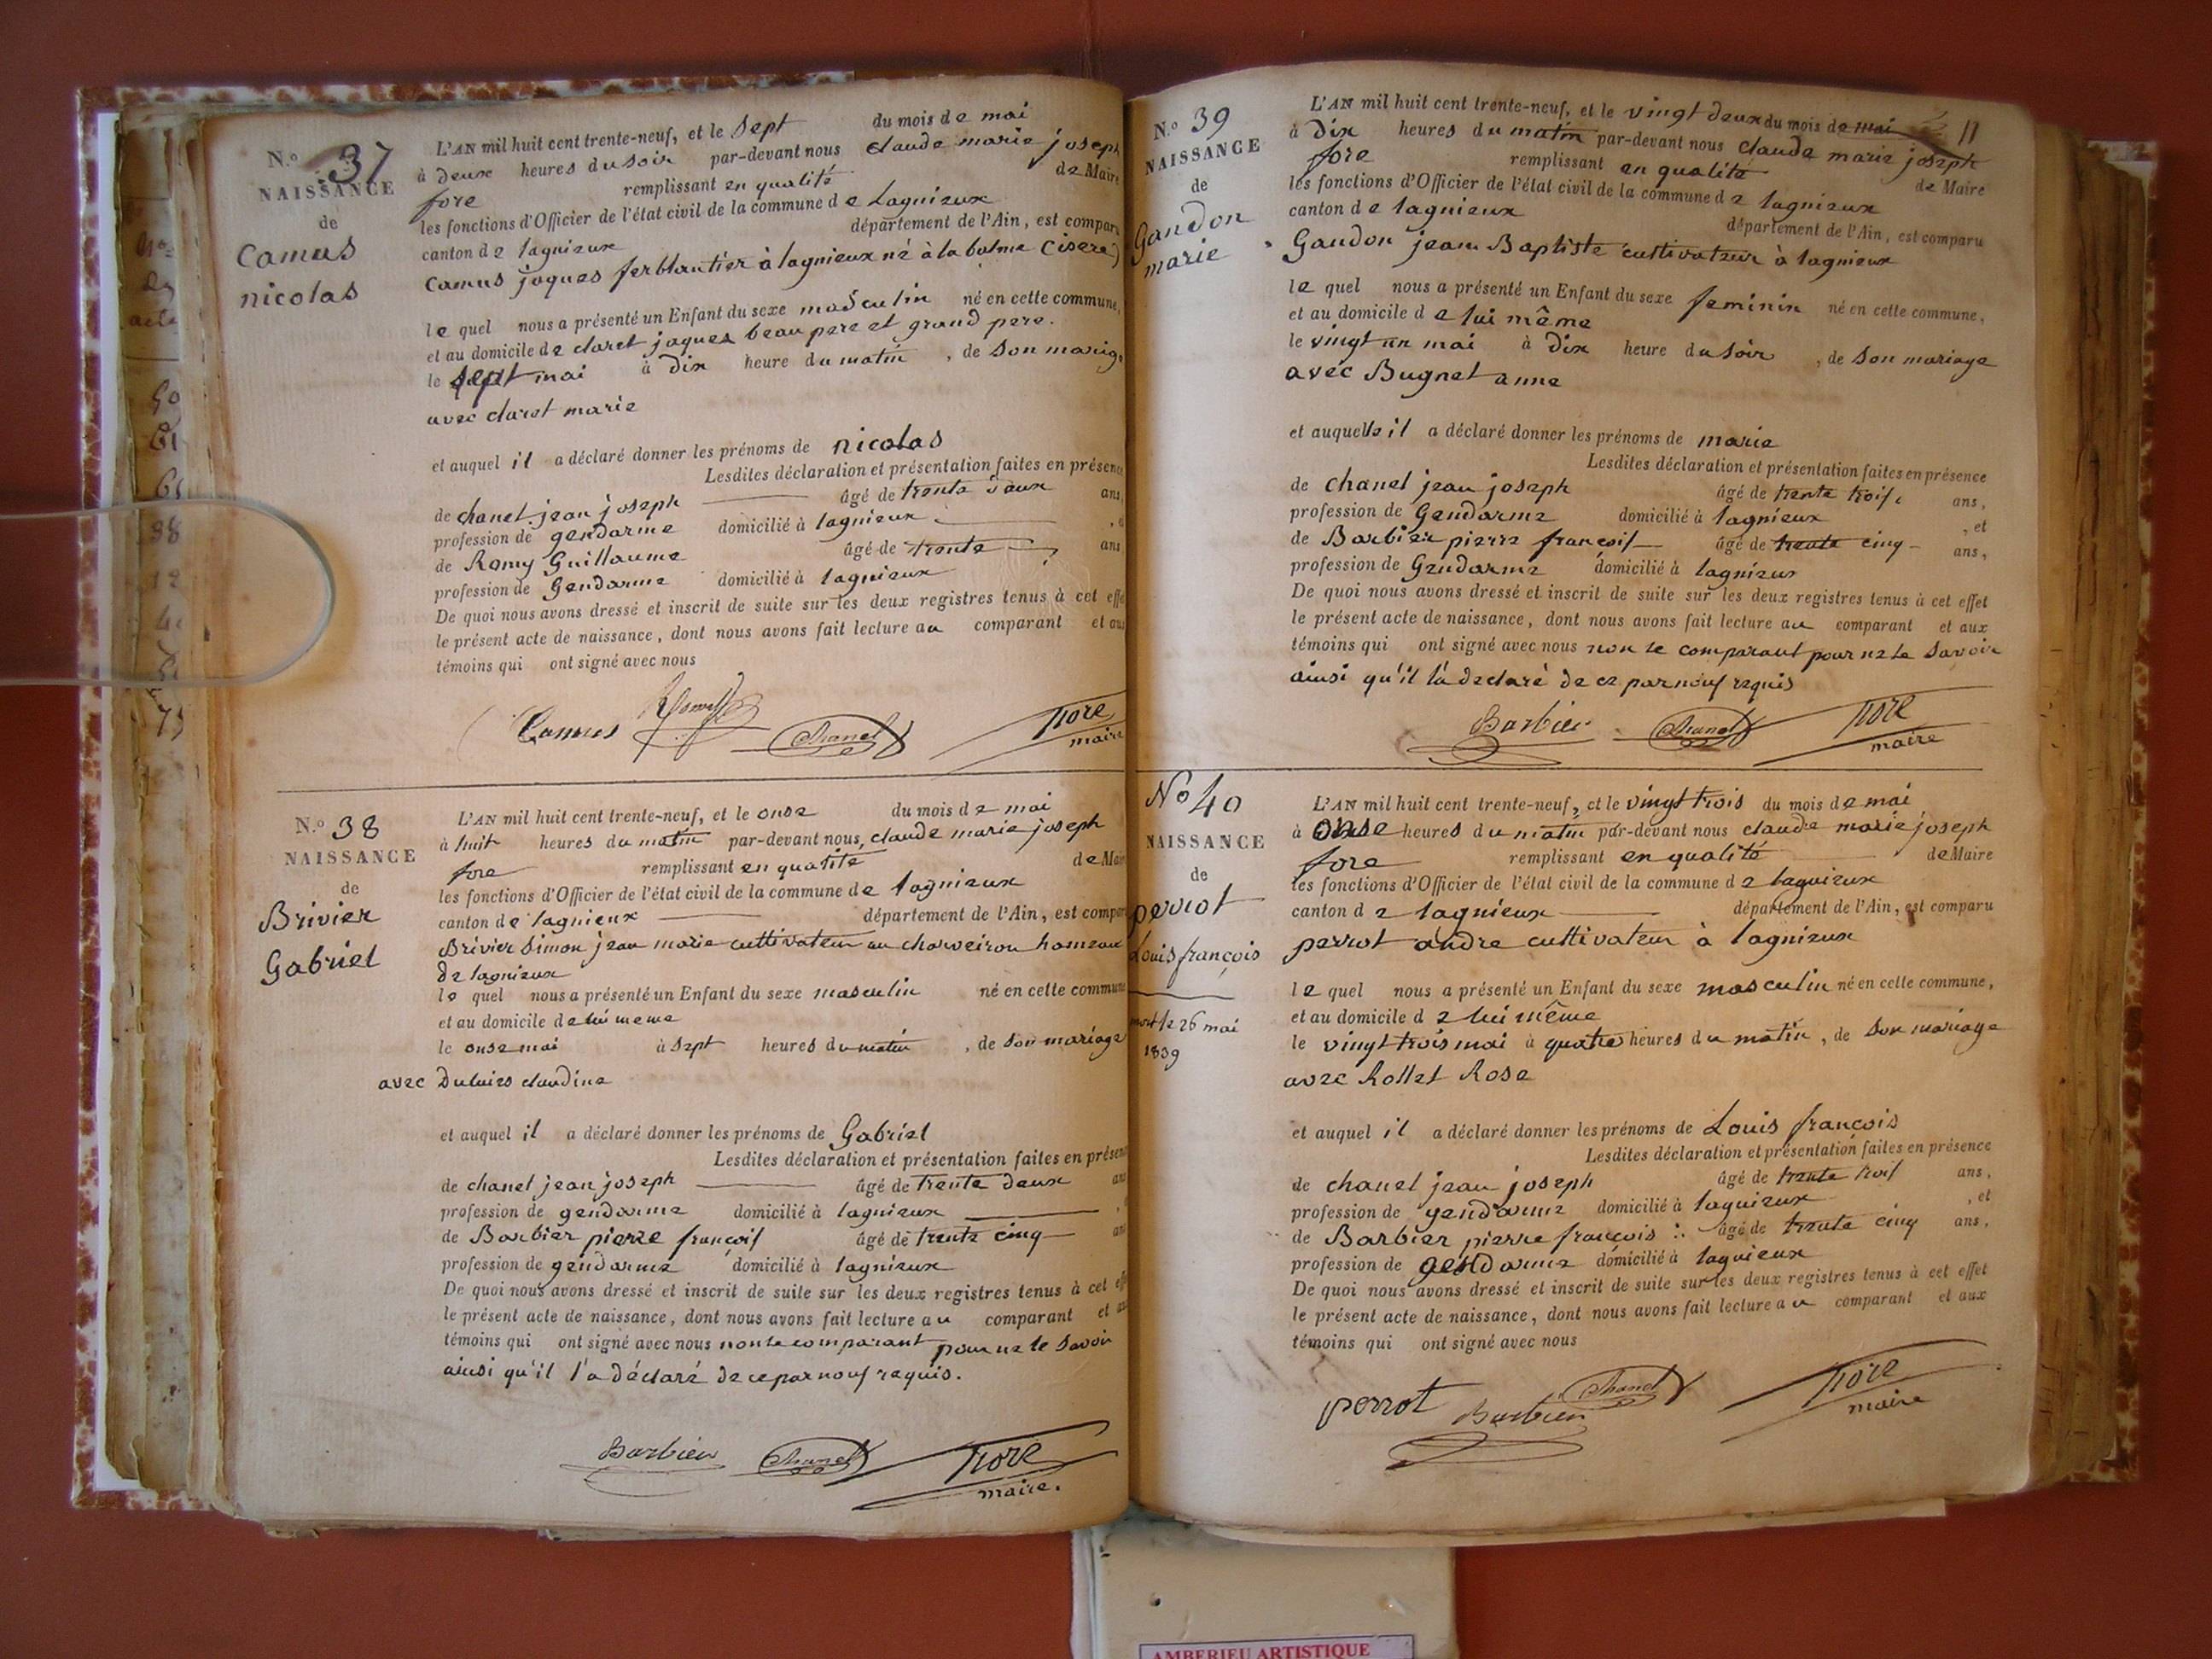 N.º 37
NAISSANCE
de
Camus
nicolas
L'AN mil huit cent trente-neuf, et le sept du mois de mai
à deux heures du soir par-devant nous claude marie joseph
fore remplissant en qualité de Maire
les fonctions d'Officier de l'état civil de la commune de Lagnieux
canton de lagnieux département de l'Ain, est compar
Camus jaques ferblantier à lagnieux né à la balme (isere)
le quel nous a présenté un Enfant du sexe masculin né en cette commune,
et au domicile de claret jaques beau pere et grand pere.
le sept mai à dix heure du matin, de son mariage
avec claret marie
et auquel il a déclaré donner les prénoms de nicolas
Lesdites déclaration et présentation faites en présence
de chanel jean joseph âgé de trente deux ans,
profession de gendarme domicilié à lagnieux
de Romy Guillaume âgé de trente ans
profession de Gendarme domicilié à lagnieux
De quoi nous avons dressé et inscrit de suite sur les deux registres tenus à cet effe
le présent acte de naissance, dont nous avons fait lecture au comparant et aux
témoins qui ont signé avec nous
Camus Chanel fore
maire
N.º 38
NAISSANCE
de
Brivier
Gabriel
L'AN mil huit cent trente-neuf, et le onse du mois de mai
à huit heures du matin par-devant nous, claude marie joseph
fore remplissant en qualité de Mai
les fonctions d'Officier de l'état civil de la commune de lagnieux
canton de lagnieux département de l'Ain, est compar
Brivier Simon jean marie cultivateur au charveiron hameau
de lagnieux
le quel nous a présenté un Enfant du sexe masculin né en cette commune
et au domicile de lui meme
le onse mai à sept heures du matin, de son mariage
avec claudine
et auquel il a déclaré donner les prénoms de Gabriel
Lesdites déclaration et présentation faites en présen
de chanel jean joseph âgé de trente deux ans
profession de gendarme domicilié à lagnieux
de Barbier pierre françois âgé de trente cinq ans
profession de gendarme domicilié à lagnieux
De quoi nous avons dressé et inscrit de suite sur les deux registres tenus à cet effe
le présent acte de naissance, dont nous avons fait lecture au comparant et au
témoins qui ont signé avec nous non le comparant pour ne le savoir
ainsi qu'il l'a déclaré de ce par nous requis.
Barbier Chanel fore
maire.
N.º 39
NAISSANCE
de
Gandon
marie
11
L'AN mil huit cent trente-neuf, et le vingt deux du mois de mai
à dix heures du matin par-devant nous claude marie joseph
fore remplissant en qualité de Maire
les fonctions d'Officier de l'état civil de la commune de lagnieux
canton de lagnieux département de l'Ain, est comparu
Gandon jean Baptiste cultivateur à lagnieux
le quel nous a présenté un Enfant du sexe feminin né en cette commune,
et au domicile de lui même
le vingt un mai à dix heure du soir, de son mariage
avec Bugnet anne
et auquelle il a déclaré donner les prénoms de marie
Lesdites déclaration et présentation faites en présence
de chanel jean joseph âgé de trente trois ans,
profession de Gendarme domicilié à lagnieux, et
de Barbier pierre françois âgé de trente cinq ans,
profession de Gendarme domicilié à lagnieux
De quoi nous avons dressé et inscrit de suite sur les deux registres tenus à cet effet
le présent acte de naissance, dont nous avons fait lecture au comparant et aux
témoins qui ont signé avec nous non le comparant pour ne le savoir
ainsi qu'il l'a declaré de ce par nous requis
Barbier Chanel fore
maire
Nº 40
NAISSANCE
de
perrot
Louis françois
mort le 26 mai
1839
L'AN mil huit cent trente-neuf, et le vingt trois du mois de mai
à onse heures du matin par-devant nous claude marie joseph
fore remplissant en qualité de Maire
les fonctions d'Officier de l'état civil de la commune de lagnieux
canton de lagnieux département de l'Ain, est comparu
perrot andre cultivateur à lagnieux
le quel nous a présenté un Enfant du sexe masculin né en cette commune,
et au domicile de lui même
le vingt trois mai à quatre heures du matin, de son mariage
avec Rollet Rose
et auquel il a déclaré donner les prénoms de Louis françois
Lesdites déclaration et présentation faites en présence
de chanel jean joseph âgé de trente trois ans,
profession de gendarme domicilié à lagnieux, et
de Barbier pierre françois âgé de trente cinq ans,
profession de gendarme domicilié à lagnieux
De quoi nous avons dressé et inscrit de suite sur les deux registres tenus à cet effet
le présent acte de naissance, dont nous avons fait lecture au comparant et aux
témoins qui ont signé avec nous
perrot Barbier Chanel fore
maire
AMBERIEU ARTISTIQUE